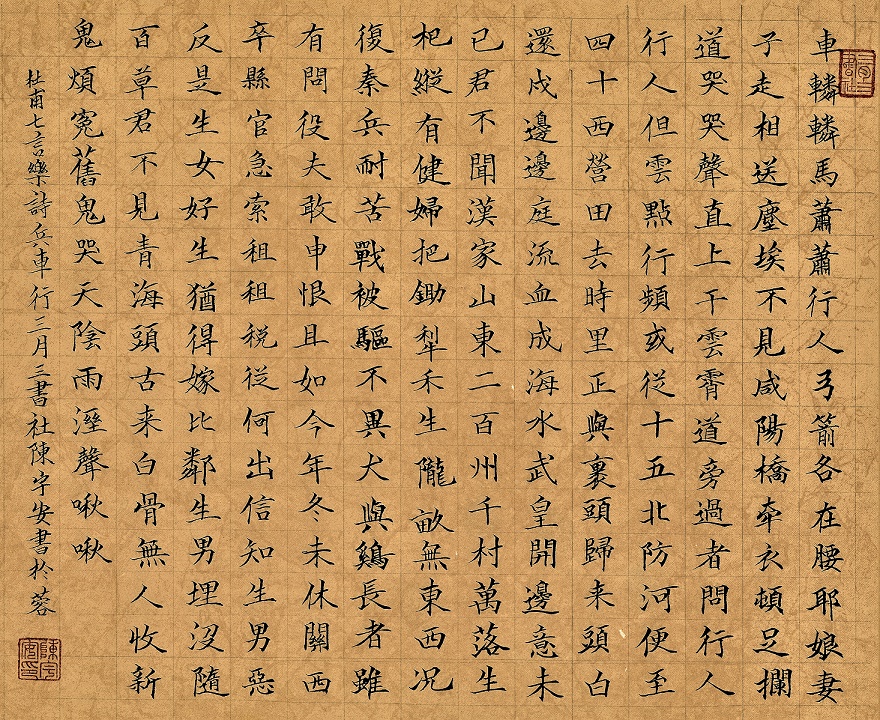 車轔轔馬蕭蕭行人弓箭各在腰耶娘妻
子走相送塵埃不見咸陽橋牽衣頓足攔
道哭哭聲直上干雲霄道旁過者問行人
行人但雲點行頻或從十五北防河便至
四十西營田去時里正與裹頭歸来頭白
還戍邊邊庭流血成海水武皇開邊意未
已君不聞漢家山東二百州千村萬落生
杞縱有健婦把鋤犁禾生隴畝無東西况
復秦兵耐苦戰被驅不異犬與鷄長者雖
有問役夫敢申恨且如今年冬未休關西
卒縣官急索租租税從何出信知生男惡
反是生女好生猶得嫁比鄰生男埋没隨
百草君不見青海頭古来白骨無人收新
鬼煩冤舊鬼哭天陰雨溼聲啾啾
杜甫七言樂詩兵車行三月三書社陳宇安書於蓉
陳宇安印